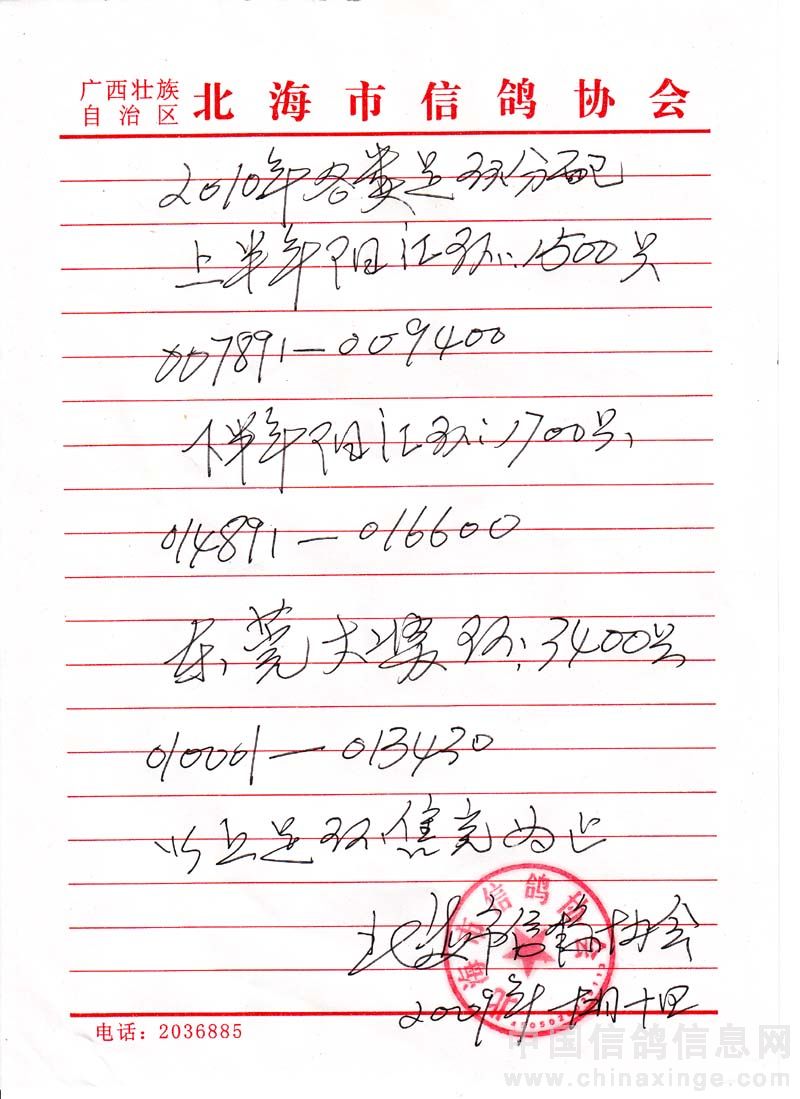 广西壮族
自治区 北海市信鸽协会
2010年各类足环分配
上半年阳江环:1500只
007891—009400
下半年阳江环:1700只,
014891—016600
东莞大奖环:3400只
010001—013430
以上足环售完为止
北海市信鸽协会
2009年十月十日
北海市信鸽协会
电话:2036885
中国信鸽信息网
www.chinaxinge.com